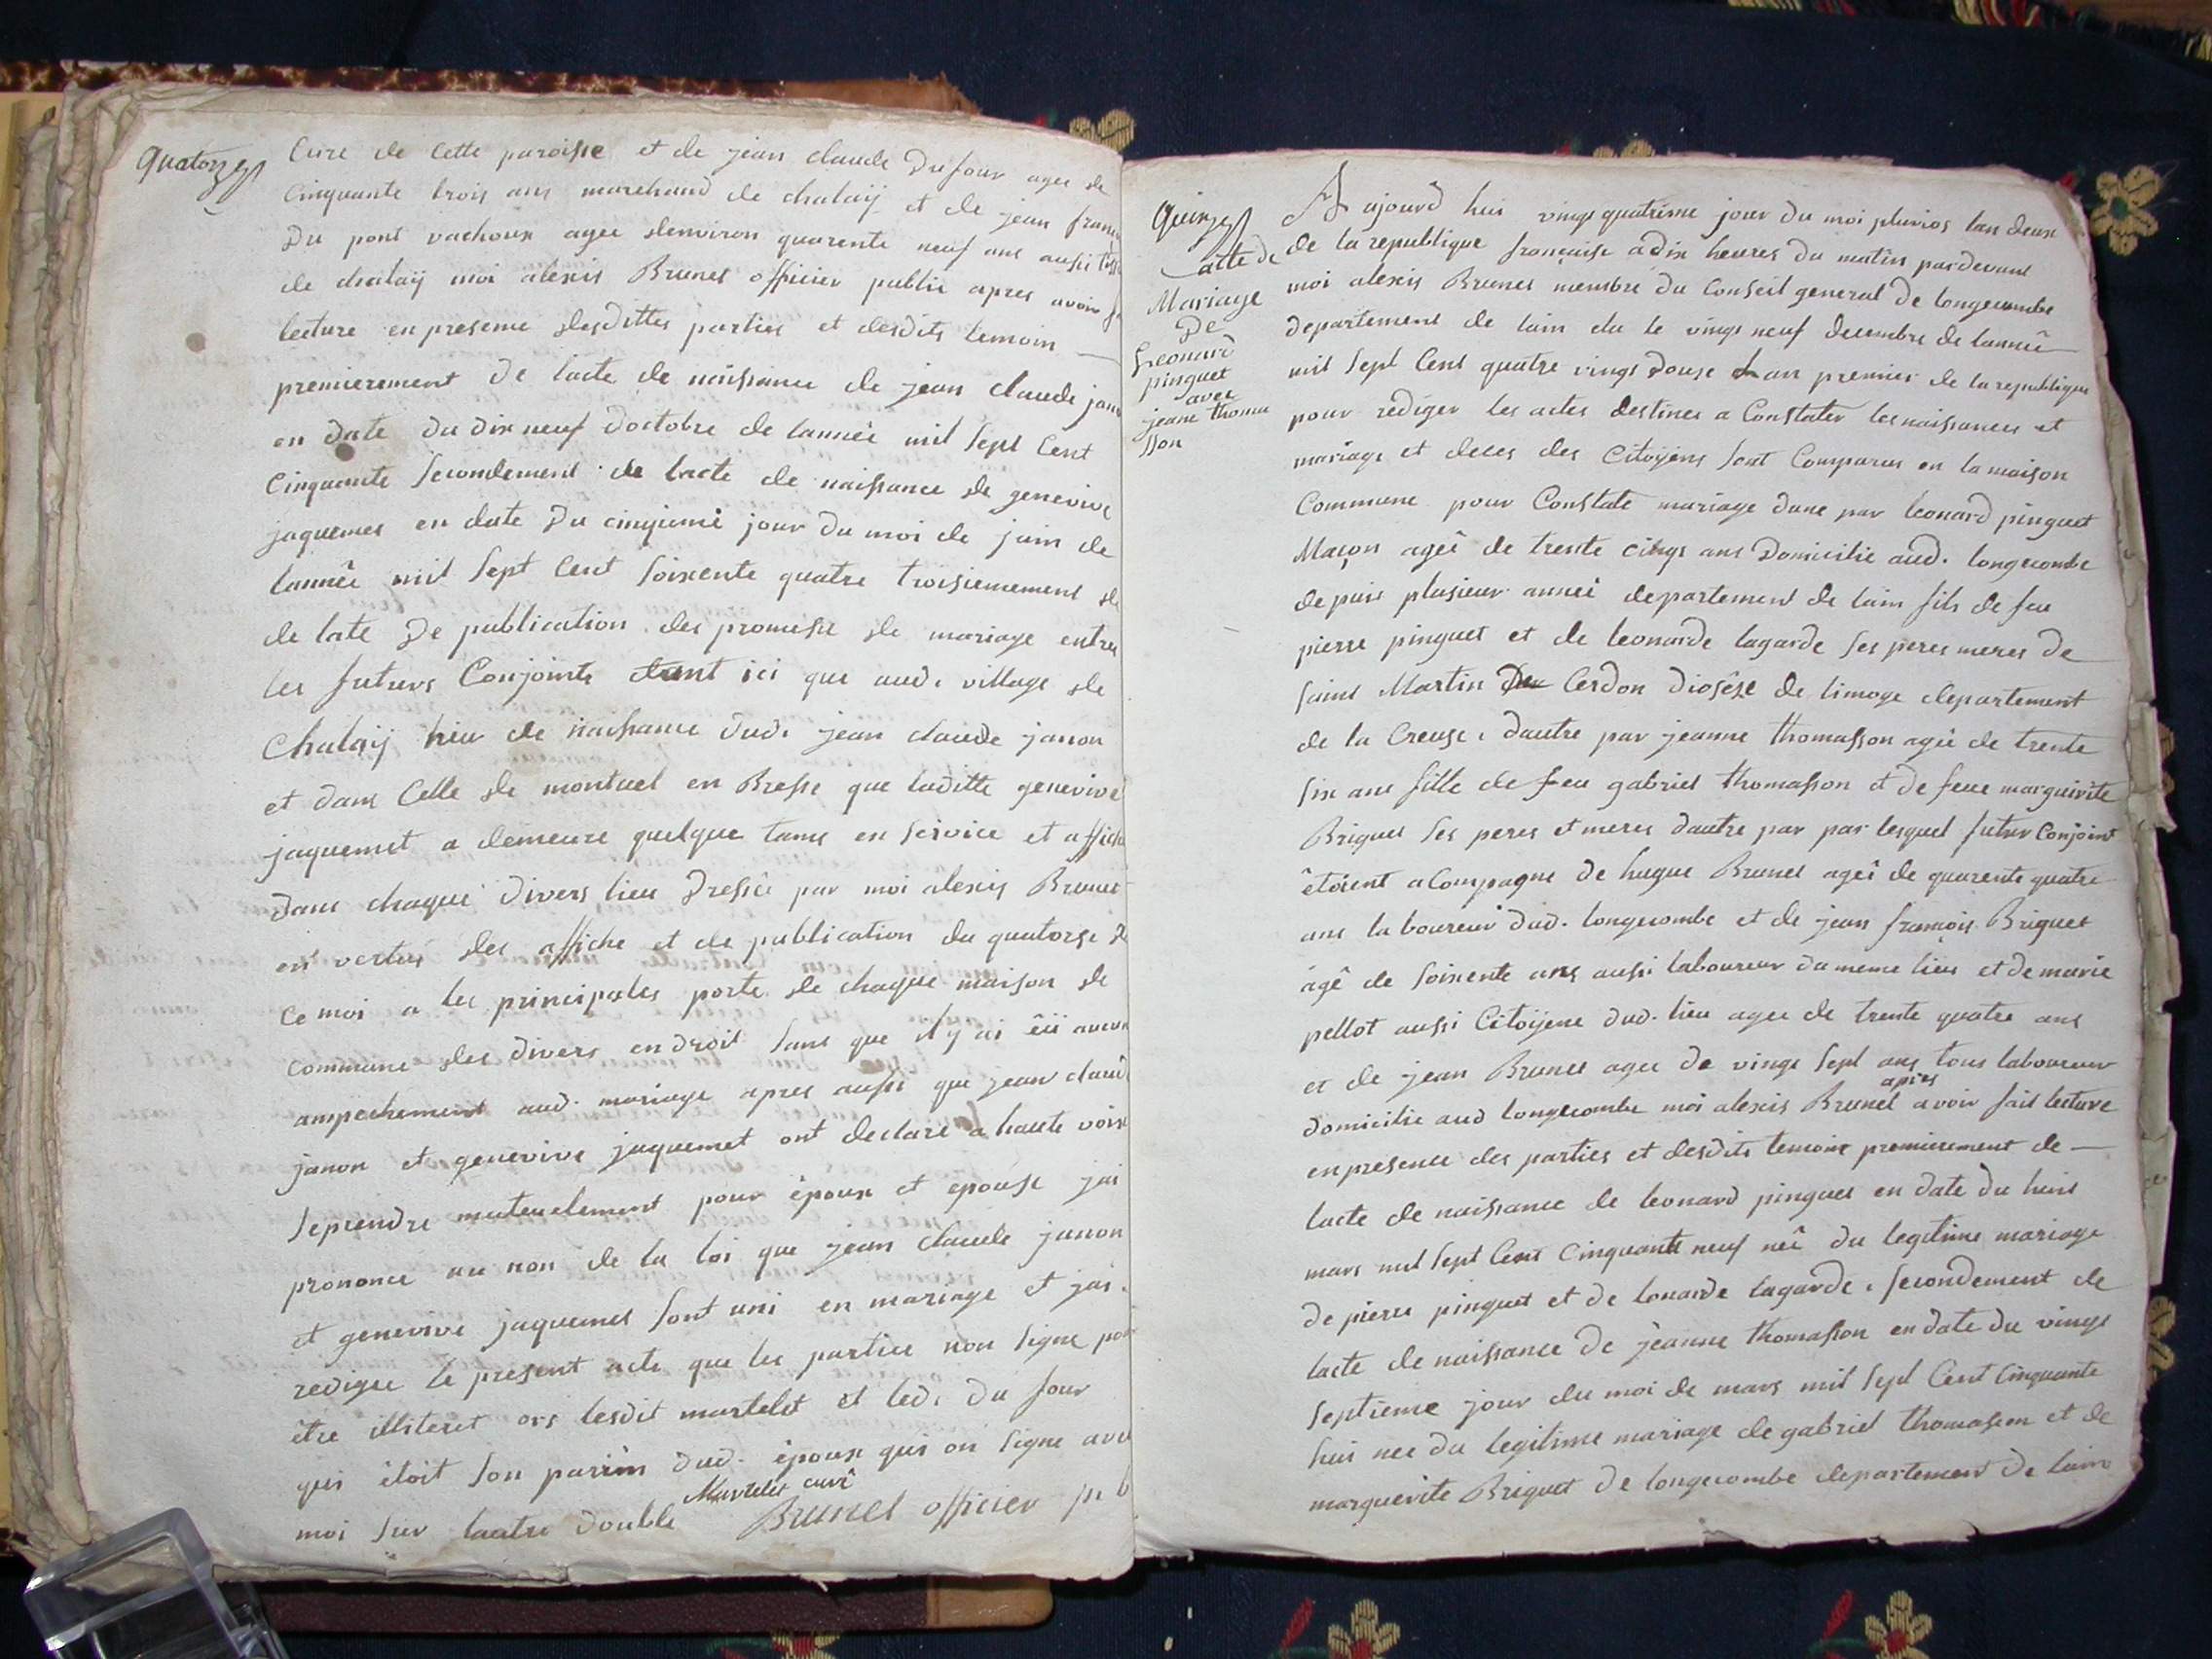 quatorze
Cure de Cette paroisse et de jean claude Dufour agee de
Cinquante trois ans marchand de chalaÿ et de jean
Du pont vachoux agee denviron quarente neuf ans aussi
de chalaÿ moi alexis Brunet officier public apres avoir
lecture en presence desdittes parties et desdits temoin —
premierement de lacte de naissance de jean claude
en Date du dix neuf doctobre de lannée mil Sept Cent
Cinquante Secondement de lacte de naissance de genevive
jaquemet en date Du cinqieme jour du moi de juin de
lannêe mil Sept Cent Soixente quatre troisiemement de
de late De publication des promesse de mariage entre
les futurs Conjoints tant ici que aud. village de
Chalaÿ lieu de naissance dud. jean claude janon
et dans Celle de montuel en Bresse que laditte genevive
jaquemet a demeure quelque tams en service et
dans chaque divers lieu Dressée par moi alexis Brunet
en vertus des affiche et de publication du quatorze
Ce moi a les principales porte de chaque maison de
commune des divers endroit Sans que il y ai êü
ampechement aud. mariage apres aussi que jean
janon et genevive jaquemet ont declare a haute voix
Seprendre mutuelement pour époux et epouse jai
prononce au non de la loi que jean claude janon
et genevive jaquemet Sont uni en mariage et jai
redigee le present acte que les partiee non Signe
être illiteret ors lesdit martelet et led. du four
qui êtoit Son parrin dud. époux qui on Signe
moi Sur lautre double Martelet curê Brunel officier
quinze
acte de
Mariage
De
Leonard
pinguet
avec
jeane thoma
sson
Aujourd hui vingt quatrieme jour du moi pluvios lan deux
de la republique française a dix heures du matin pardevant
moi alexis Brunet membre du Conseil general de longecombe
departement de lain elu le vingt neuf decembre de lannêe
mil Sept Cent quatre vingt Douse lan premier de la republique
pour rediger les actes destinee a Constater les naissances et
mariage et deces des Citoÿens Sont Comparus en la maison
Commune pour Constate mariage dune par leonard pinguet
Maçon ageê de trente cinqs ans Domicilie aud. longecombe
depuis plusieur anneê departement de lain fils de feu
pierre pinguet et de leonarde lagarde Ses peres meres de
Saint Martin Cerdon Diosêse de limoge departement
de la Creuse. dautre par jeanne thomasson ageê de trente
Six ans fille de feu gabriel thomasson et de feue marguirite
Briguet Ses peres et meres dautre par par lesquel futur Conjoint
êtoient aCompagne de hugue Brunet ageê de quarente quatre
ans laboureur dud. longecombe et de jean françois Briguet
âgê de Soixente ans aussi laboureur du meme lieu et de marie
pellot aussi Citoÿene dud. lieu agee de trente quatre ans
et de jean Brunet agee de vingt Sept ans tous laboureur
domicilie aud longecombe moi alexis Brunel apres avoir fait lecture
enpresence des parties et desdits temoins premierement de —
lacte de naissance de leonard pinguet en date du huit
mars mil Sept Cent Cinquante neuf neê du legitime mariage
de pierre pinguet et de lonarde lagarde. Secondement de
lacte de naissance de jeanne thomasson en date du vingt
Septieme jour du moi de mars mil Sept Cent Cinquante
huit nee du legitime mariage de gabriel thomasson et de
marguerite Briguet de longecombe departement de lain